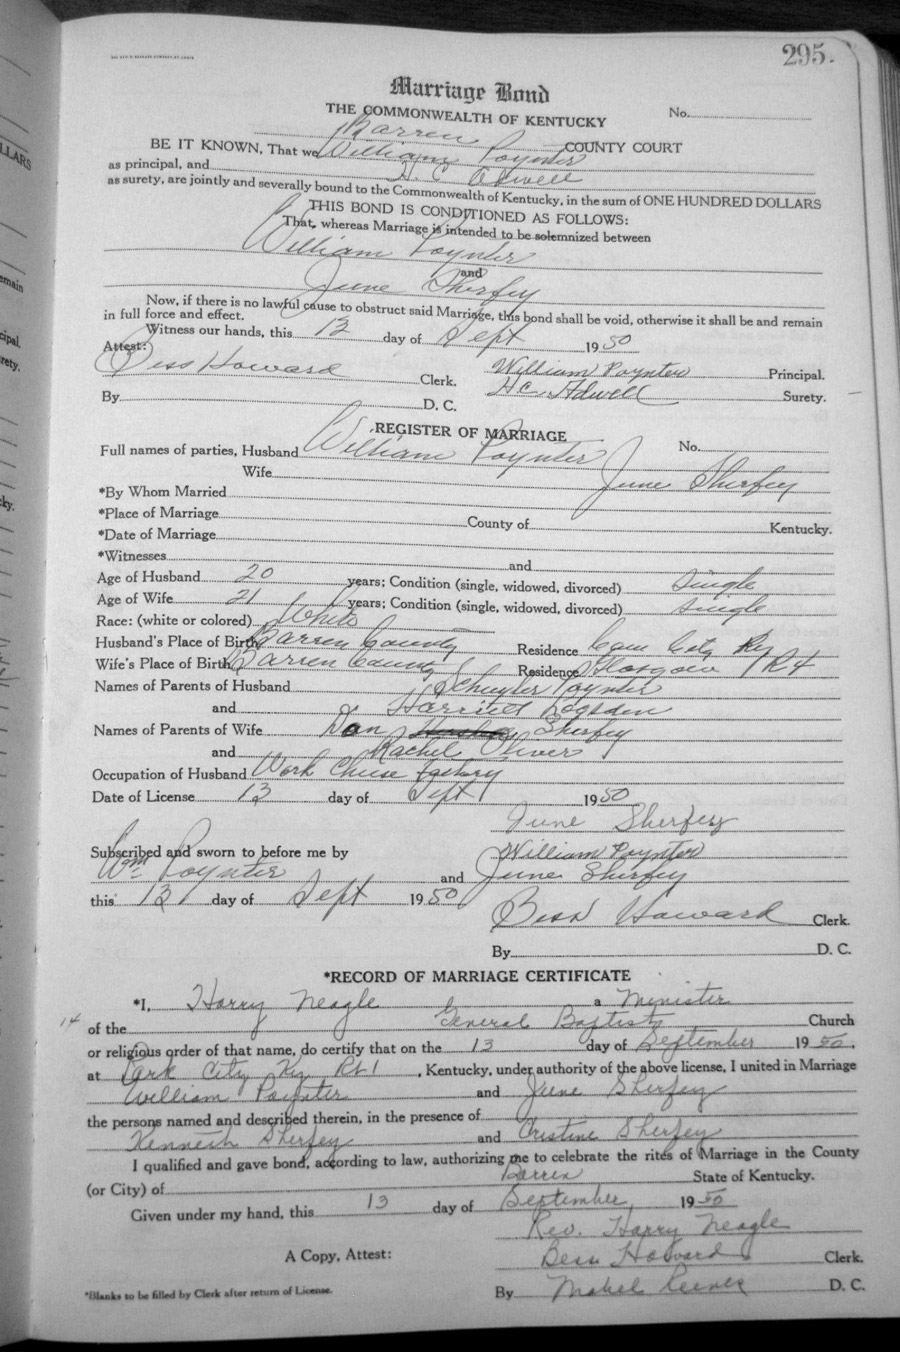 295.
Marriage Bond
THE COMMONWEALTH OF KENTUCKY No.
Barren COUNTY COURT
BE IT KNOWN, That we William Poynter
as principal, and H. C. Adwell
as surety, are jointly and severally bound to the Commonwealth of Kentucky, in the sum of ONE HUNDRED DOLLARS
THIS BOND IS CONDITIONED AS FOLLOWS:
That, whereas Marriage is intended to be solemnized between
William Poynter
and
June Sherfey
Now, if there is no lawful cause to obstruct said Marriage, this bond shall be void, otherwise it shall be and remain
in full force and effect.
Witness our hands, this 13 day of Sept 1950
Attest:
Bess Howard Clerk. William Poynter Principal.
By D. C. H C. Adwell Surety.
REGISTER OF MARRIAGE
Full names of parties, Husband William Poynter No.
Wife June Sherfey
*By Whom Married
*Place of Marriage County of Kentucky.
*Date of Marriage
*Witnesses and
Age of Husband 20 years; Condition (single, widowed, divorced) single
Age of Wife 21 years; Condition (single, widowed, divorced) single
Race: (white or colored) White
Husband's Place of Birth Barren County Residence City Ky
Wife's Place of Birth Barren County Residence Glasgow R4
Names of Parents of Husband Schuyler Poynter
and Harriett Logsden
Names of Parents of Wife Dan Sherfey
and Rachel Oliver
Occupation of Husband Work Cheese factory
Date of License 13 day of Sept 1950
June Sherfey
Subscribed and sworn to before me by William Poynter
Wm Poynter and June Sherfey
this 13 day of Sept 1950
Bess Howard Clerk.
By D. C.
*RECORD OF MARRIAGE CERTIFICATE
*I, Harry Neagle a Minister
14 of the General Baptist Church
or religious order of that name, do certify that on the 13 day of September 1950,
at Park City Ky Rt 1, Kentucky, under authority of the above license, I united in Marriage
William Poynter and June Sherfey
the persons named and described therein, in the presence of
Kenneth Sherfey and Cristine Sherfey
I qualified and gave bond, according to law, authorizing me to celebrate the rites of Marriage in the County
(or City) of Barren State of Kentucky.
Given under my hand, this 13 day of September 1950
Rev. Harry Neagle
A Copy, Attest: Bess Howard Clerk.
*Blanks to be filled by Clerk after return of License. By Mabel Reeves D. C.